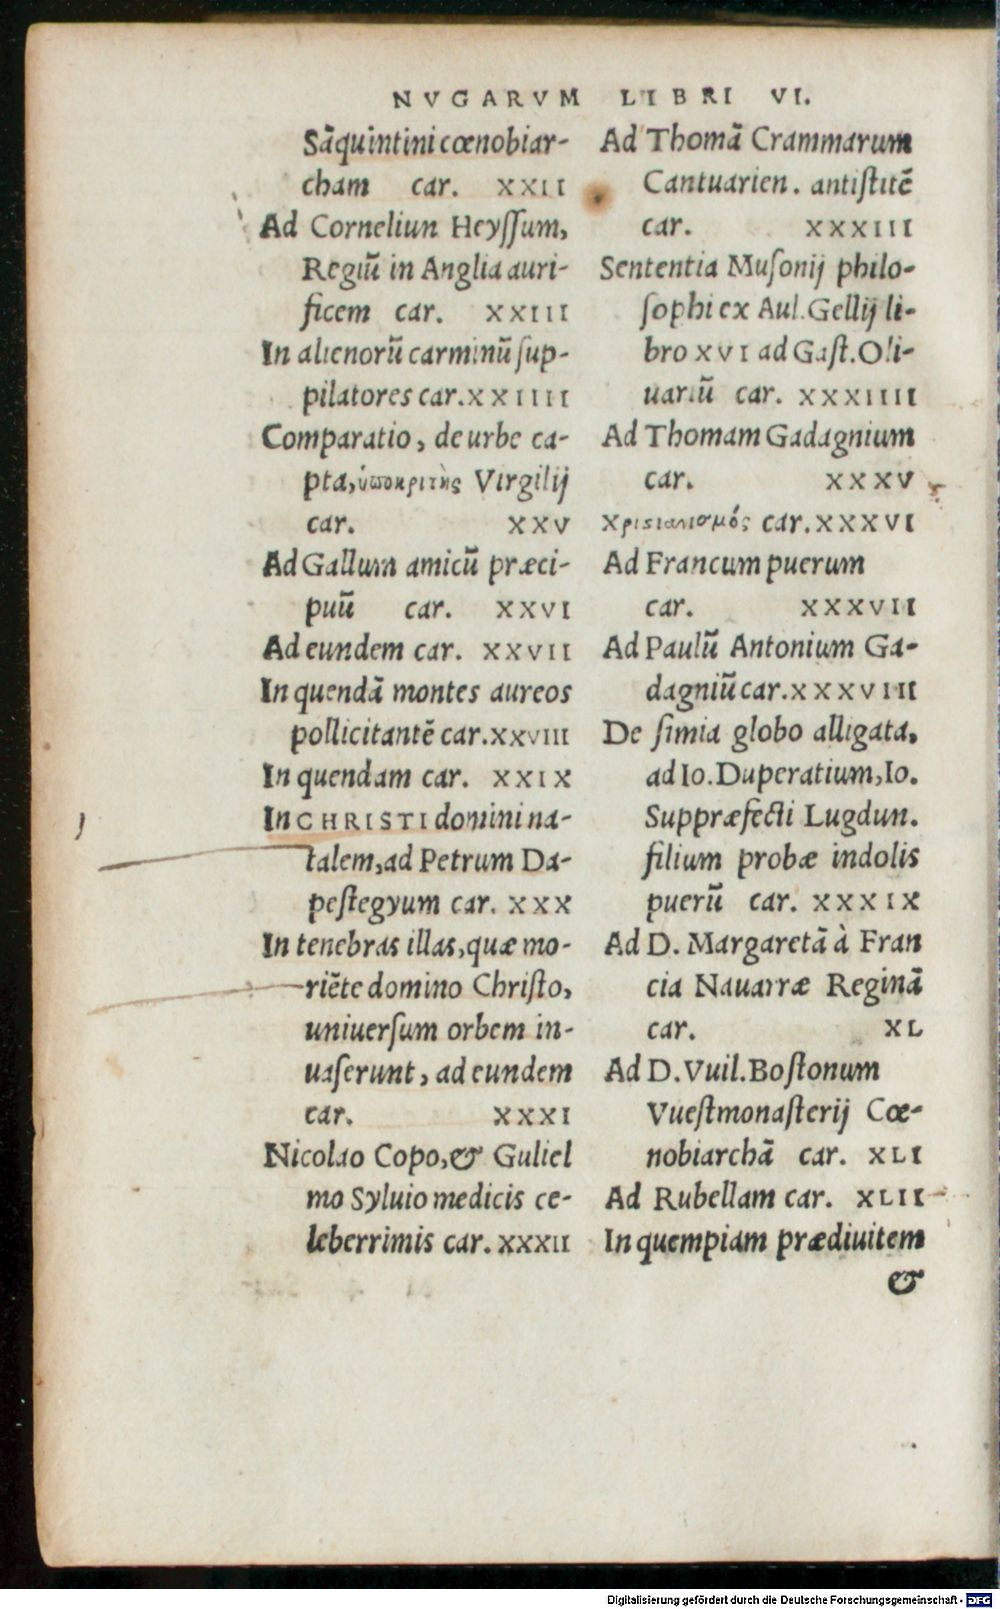 NVGARVM LIBRI VI.
Sãquintini cœnobiar-
cham car. XXII
Ad Corneliun Heyſſum,
Regiũ in Anglia auri-
ficem car. XXIII
In alienorũ carminũ ſup-
pilatores car. XXIIII
Comparatio, de urbe ca-
pta, ὑποκριτὴς Virgilij
car. XXV
Ad Gallum amicũ præci-
puũ car. XXVI
Ad eundem car. XXVII
In quendã montes aureos
pollicitantẽ car. XXVIII
In quendam car. XXIX
In CHRISTI domini na-
talem, ad Petrum Da-
peſtegyum car. XXX
In tenebras illas, quæ mo-
riẽte domino Chriſto,
uniuerſum orbem in-
uaſerunt, ad eundem
car. XXXI
Nicolao Copo, & Guliel
mo Syluio medicis ce-
leberrimis car. XXXII
Ad Thomã Crammarum
Cantuarien. antiſtitẽ
car. XXXIII
Sententia Muſonij philo-
ſophi ex Aul. Gellij li-
bro XVI ad Gaſt. Oli-
uariũ car. XXXIIII
Ad Thomam Gadagnium
car. XXXV
χριστιανισμός car. XXXVI
Ad Francum puerum
car. XXXVII
Ad Paulũ Antonium Ga-
dagniũ car. XXXVIII
De ſimia globo alligata,
ad Io. Duperatium, Io.
Suppræfecti Lugdun.
filium probæ indolis
puerũ car. XXXIX
Ad D. Margaretã à Fran
cia Nauarræ Reginã
car. XL
Ad D. Vuil. Boſtonum
Vueſtmonaſterij Cœ-
nobiarchã car. XLI
Ad Rubellam car. XLII
In quempiam prædiuitem
&
Digitalisierung gefördert durch die Deutsche Forschungsgemeinschaft - DFG